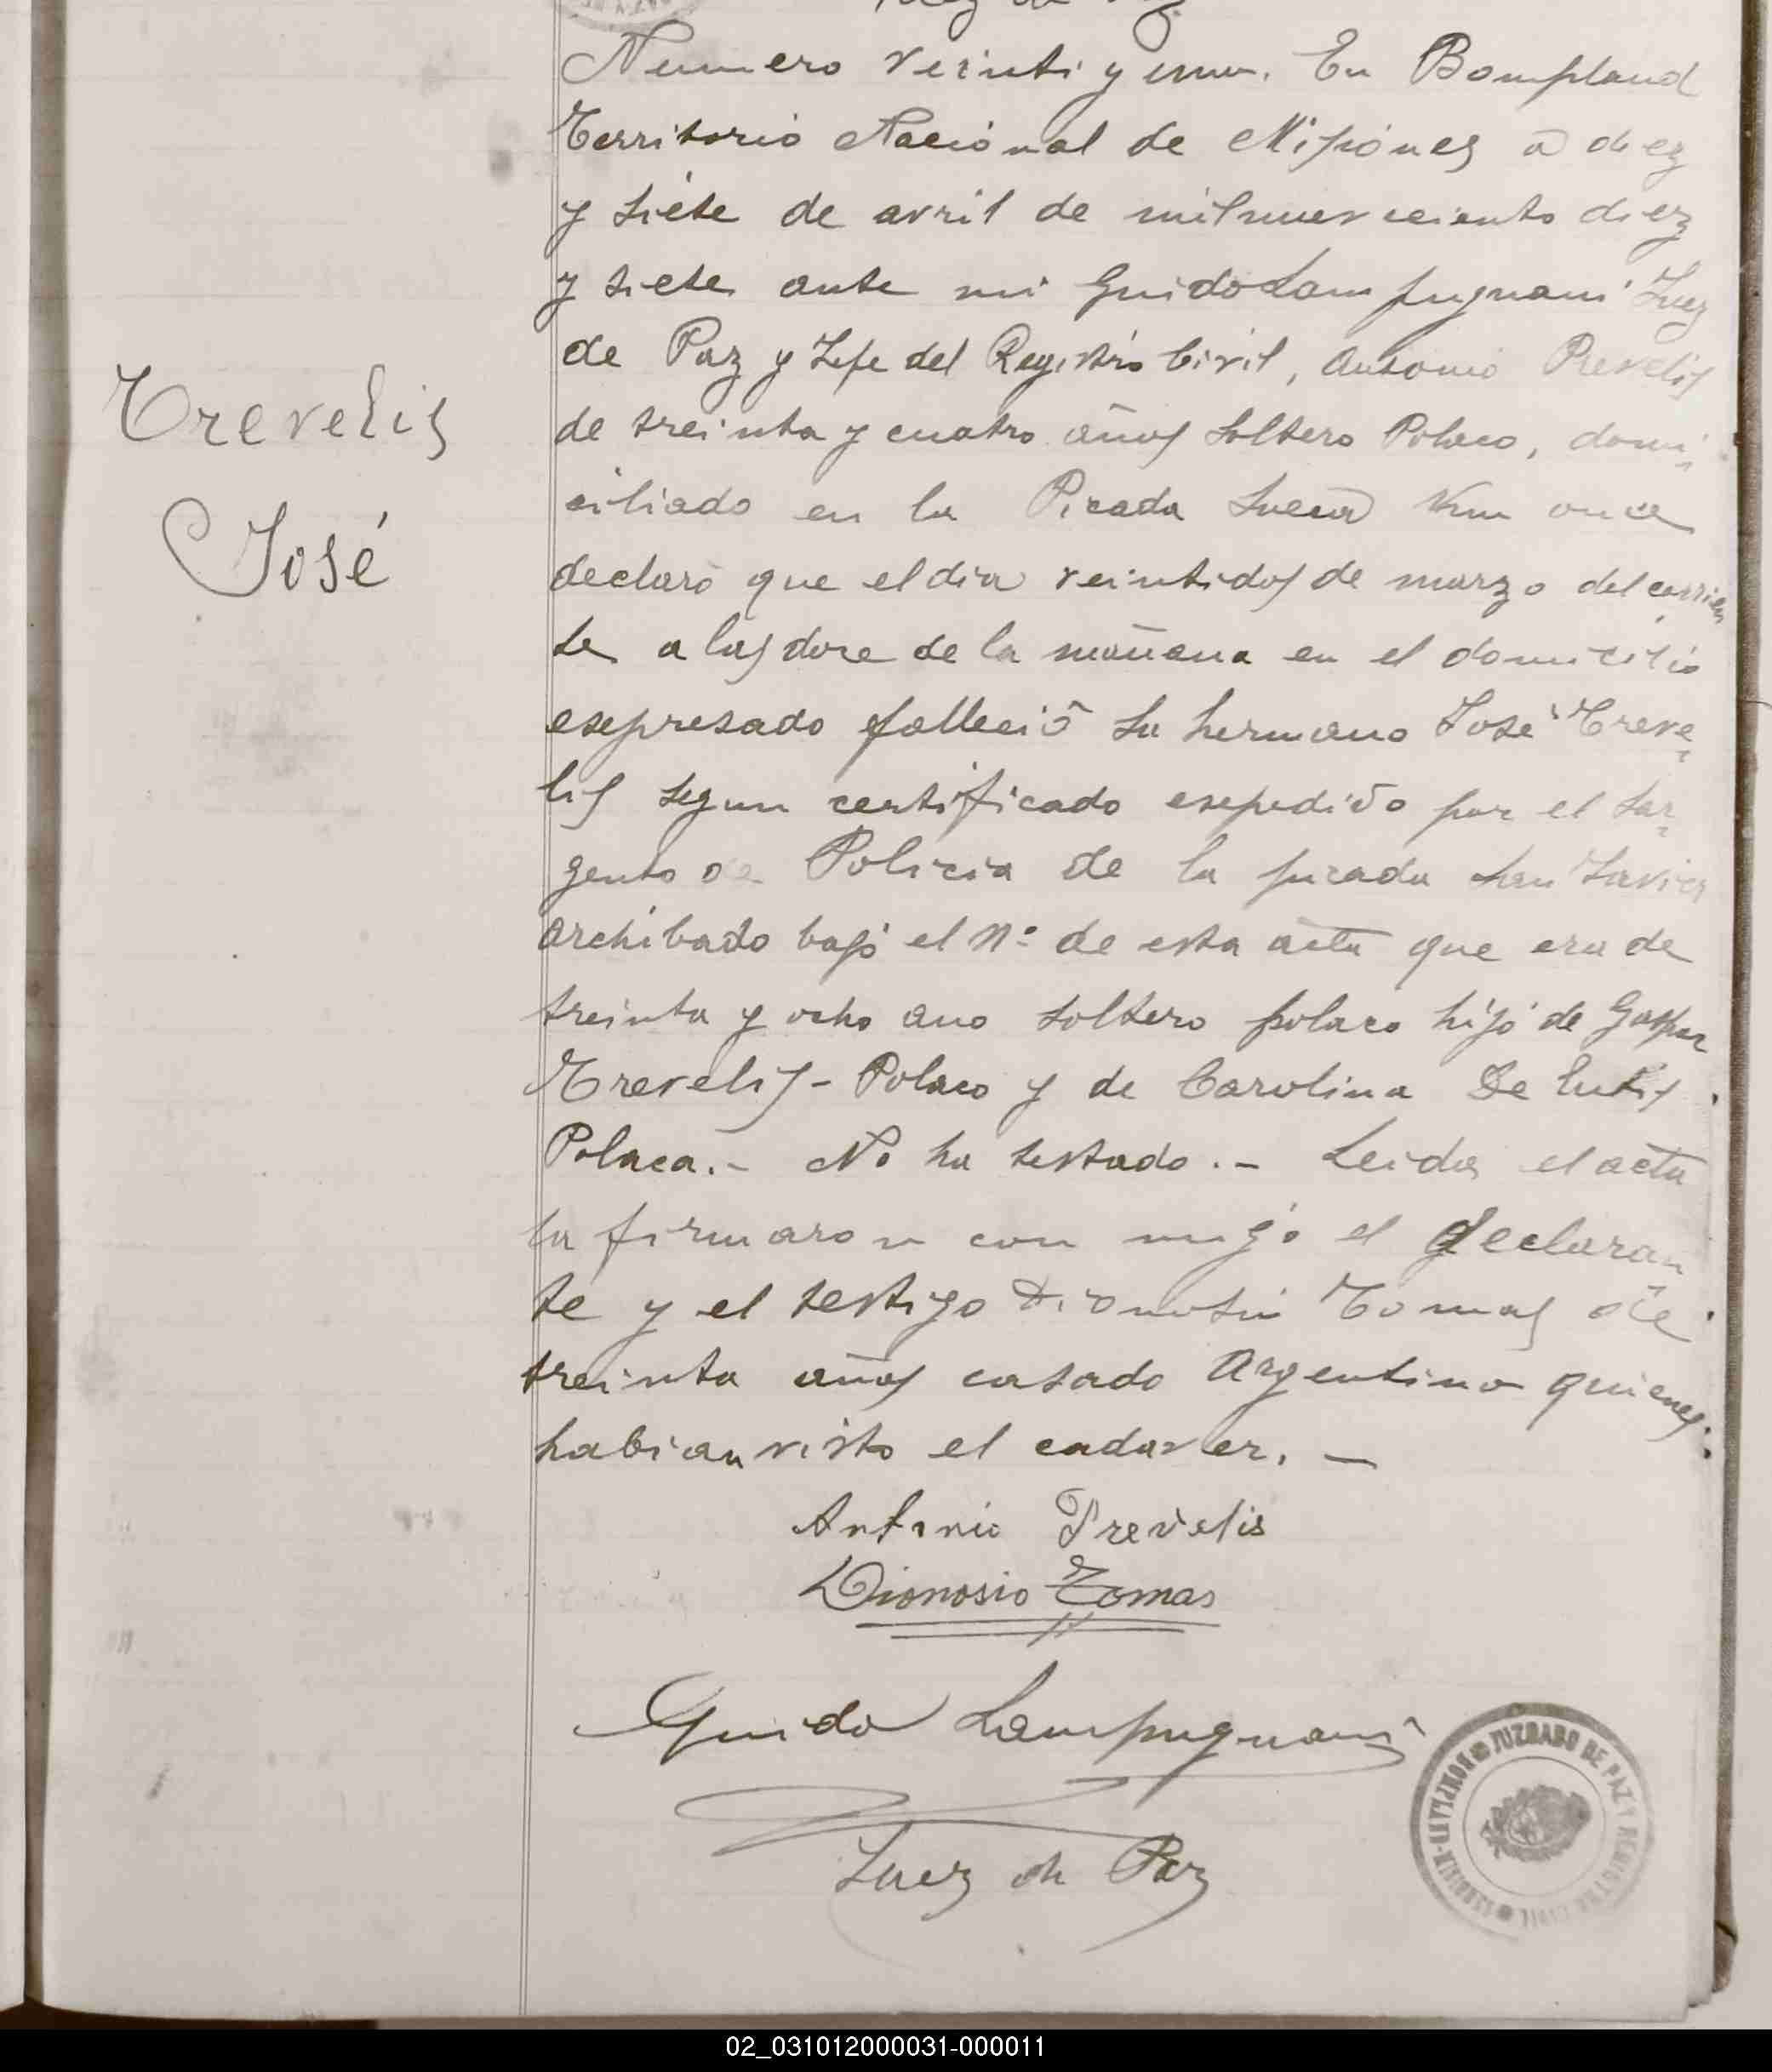 Juez de Paz
Numero veinti y uno. En Bompland
Territorio Nacional de Misiones a diez
y siete de avril de milnuevecciento diez
y siete ante mi Guido Lampugnani Juez
de Paz y Jefe del Registro Civil, Antonio Prevelis
de treinta y cuatro años soltero Polaco, domi-
Trevelis
ciliado en la Picada Sueca Km once
José
declaró que el dia veintidos de marzo del corrien
te a las doce de la mañana en el domicilio
esepresado falleció su hermano José Treve-
lis segun certificado esepedido por el Sar-
gento de Policia de la picada San Javier
archibado bajo el Nº de esta acta que era de
treinta y ocho ano soltero polaco hijo de Gaspar
Trevelis - Polaco y de Carolina De
Polaca.- No ha testado.- Leida el acta
la firmaron con migo el declaran-
te y el testigo Tomas de
treinta años casado Argentino quienes
habian visto el cadaver. —
Antonio Prevelis
Dionosio Tomas
Guido Lampugnani
Juez de Paz
JUZGADO DE PAZ Y REGISTRO CIVIL
BONPLAND-MISIONES
02_031012000031-000011